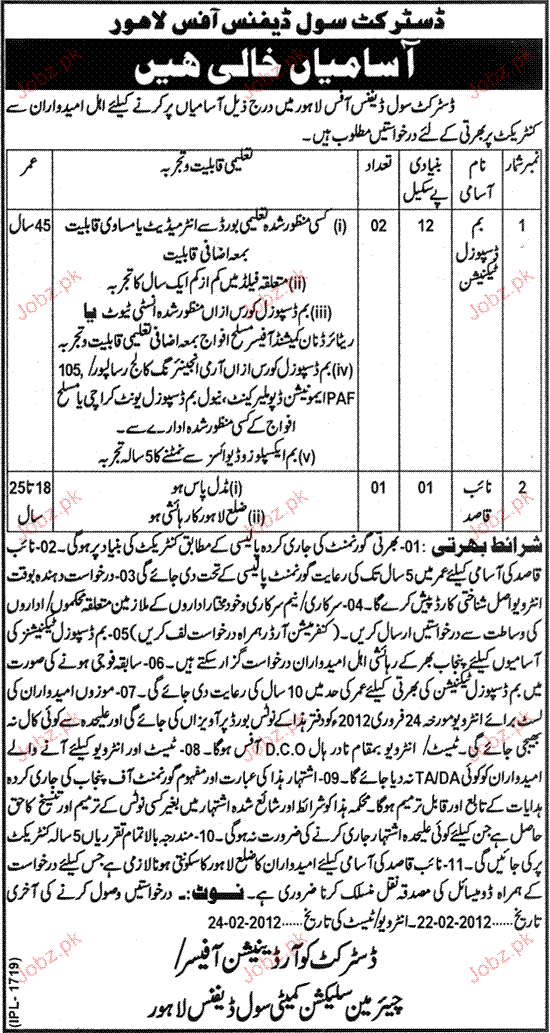 ڈسٹرکٹ سول ڈیفنس آفس لاہور
آسامیاں خالی ہیں
ڈسٹرکٹ سول ڈیفنس آفس لاہور میں درج ذیل آسامیاں پر کرنے کیلئے اہل امیدواران سے
کنٹریکٹ پر بھرتی کے لئے درخواستیں مطلوب ہیں۔
نمبر شمار نام آسامی بنیادی پے سکیل تعداد تعلیمی قابلیت و تجربہ عمر
1 بم ڈسپوزل ٹیکنیشن 12 02 (i) کسی منظور شدہ تعلیمی بورڈ سے انٹرمیڈیٹ یا مساوی قابلیت 45 سال
بمعہ اضافی قابلیت
(ii) متعلقہ فیلڈ میں کم از کم ایک سال کا تجربہ
(iii) بم ڈسپوزل کورس ازاں منظور شدہ انسٹی ٹیوٹ یا
ریٹائرڈ نان کمیشنڈ آفیسر مسلح افواج بمعہ اضافی تعلیمی قابلیت و تجربہ
(iv) بم ڈسپوزل کورس ازاں آرمی انجینئرنگ کالج رسالپور/ 105,
PAF ایمونیشن ڈپو ملیر کینٹ، نیول بم ڈسپوزل یونٹ کراچی یا مسلح
افواج کے کسی منظور شدہ ادارے سے۔
(v) بم ایکسپلوزو ڈیوائسز سے نمٹنے کا 5 سالہ تجربہ
2 نائب قاصد 01 01 (i) مڈل پاس ہو 18 تا 25 سال
(ii) ضلع لاہور کا رہائشی ہو
شرائط بھرتی :01- بھرتی گورنمنٹ کی جاری کردہ پالیسی کے مطابق کنٹریکٹ کی بنیاد پر ہوگی۔ 02- نائب
قاصد کی آسامی کیلئے عمر میں 5 سال تک کی رعایت گورنمنٹ پالیسی کے تحت دی جائے گی 03- درخواست دہندہ بوقت
انٹرویو اصل شناختی کارڈ پیش کرے گا۔ 04- سرکاری/ نیم سرکاری و خود مختار اداروں کے ملازمین متعلقہ محکموں/ اداروں
کی وساطت سے درخواستیں ارسال کریں۔ (کنفرمیشن آرڈر ہمراہ درخواست لف کریں) 05- بم ڈسپوزل ٹیکنیشنز کی
آسامیوں کیلئے پنجاب بھر کے رہائشی اہل امیدواران درخواست گزار سکتے ہیں۔ 06- سابقہ فوجی ہونے کی صورت
میں بم ڈسپوزل ٹیکنیشن کی بھرتی کیلئے عمر کی حد میں 10 سال کی رعایت دی جائے گی۔ 07- موزوں امیدواران کی
لسٹ برائے انٹرویو مورخہ 24 فروری 2012ء کو دفتر ہذا کے نوٹس بورڈ پر آویزاں کی جائے گی اور علیحدہ سے کوئی کال نہ
بھیجی جائے گی۔ ٹیسٹ/ انٹرویو بمقام نادر ہال D.C.O آفس ہوگا۔ 08- ٹیسٹ اور انٹرویو کیلئے آنے والے
امیدواران کو کوئی TA/DA نہ دیا جائے گا۔ 09- اشتہار ہذا کی عبارت اور مفہوم گورنمنٹ آف پنجاب کی جاری کردہ
ہدایات کے تابع اور قابل ترمیم ہوگا۔ محکمہ ہذا کو شرائط اور شائع شدہ اشتہار میں بغیر کسی نوٹس کے ترمیم اور تنسیخ کا حق
حاصل ہے جن کیلئے کوئی علیحدہ اشتہار جاری کرنے کی ضرورت نہ ہوگی۔ 10- مندرجہ بالا تمام تقرریاں 5 سالہ کنٹریکٹ
پر کی جائیں گی۔ 11- نائب قاصد کی آسامی کیلئے امیدواران کا ضلع لاہور کا سکونتی ہونا لازمی ہے جس کیلئے درخواست
کے ہمراہ ڈومیسائل کی مصدقہ نقل منسلک کرنا ضروری ہے۔ نوٹ:- درخواستیں وصول کرنے کی آخری
تاریخ ......22-02-2012۔ انٹرویو/ ٹیسٹ کی تاریخ ......24-02-2012
ڈسٹرکٹ کوآرڈینیشن آفیسر/
چیئرمین سلیکشن کمیٹی سول ڈیفنس لاہور
(IPL- 1719)
Jobz.pk